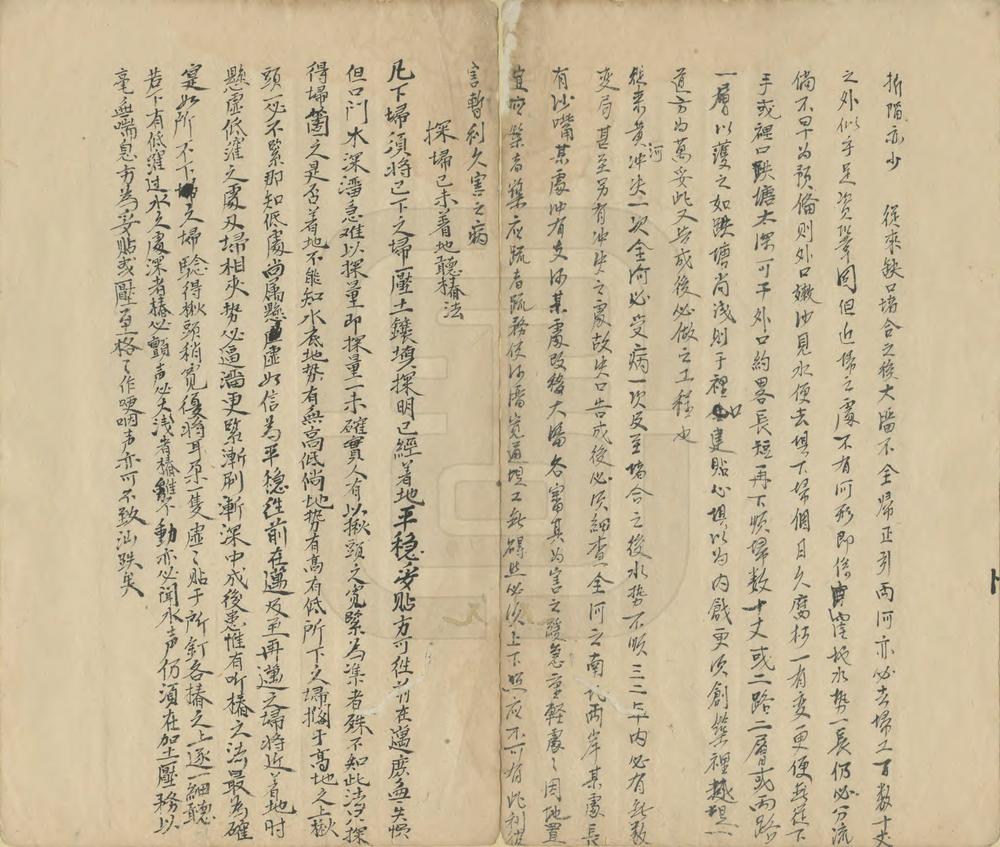 折陷亦少　從來缺口堵合之後大溜不全歸正引兩河亦必去埽工百數十丈
之外似乎足資鞏固但近埽之處不有河形即係窪地水勢一長仍必分流
倘不早為預備則外口嫩沙見水便去埧下埽個日久腐朽一有變更便無從下
手或裡口跌塘太深可于外口約畧長短再下順埽数十丈或二路二層或兩路
一層以護之如跌塘尚淺則于裡口建貼心埧以為内戧更須創築裡越埧一
道方為萬妥此又告成後必做之工程也
從來黄河冲决一次全河必受病一次及至堵合之後水势不順三二年内必有無数
变局甚至另有冲决之處故决口告成後必須細查全河之南北兩岸某處長
有沙嘴某處冲有支河某處改移大溜各審其为害之緩急重輕處之因地置
宜應築者築應疏者疏務使河唇寬適埧工無碍然必須上下照应不可有此利彼
害暫利久害之病
探埽已未着地聽樁法
凡下埽須将已下之埽壓土鑲墳探明已經着地平穏妥貼方可徃前在邁庶無失悞
但口門水深溜急难以探量即探量一未確實人有以楸頭之寬緊為準者殊不知此法只探
得埽箇之是否着地不能知水底地势有無高低倘地势有高有低所下之埽擱于高地之上楸
頭一必不緊那知低處尚属懸虚如信為平穏徃前在邁及至再邁之埽将近着地时
懸虚低窪之處刄埽相夾势必逼溜更緊漸刷漸深中成後患惟有听樁之法最為確
寔如所下之埽騐得楸頭稍寬復将耳朶一隻虚之貼于所釘各樁之上逐一細聽
若下有低窪过水之處深者樁必顫声必大浅者樁雖不動亦必闻水声仍须在加土壓務以
毫無喘息方為妥貼或壓至格之作哽咽声亦可不致汕跌矣